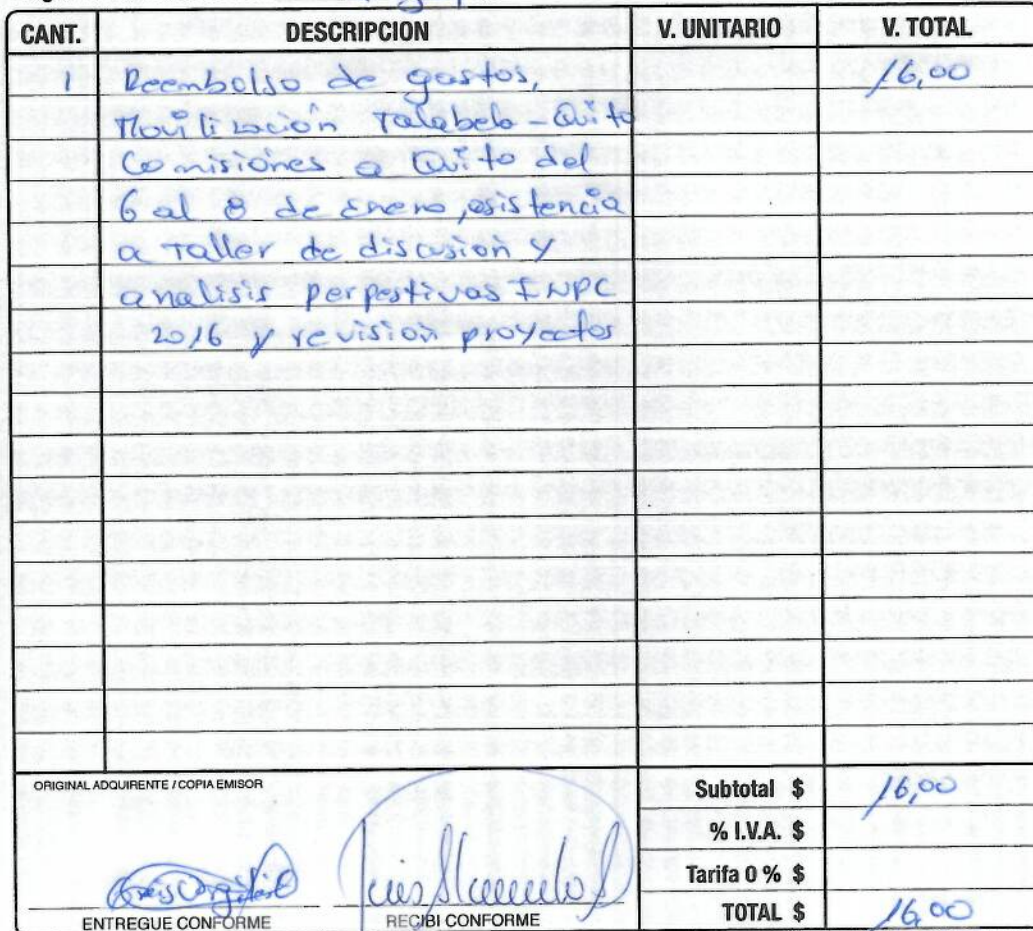 CANT. DESCRIPCION V. UNITARIO V. TOTAL
1 Reembolso de gastos, 16,00
Movilización Tababela Quito
Comisiones a Quito del
6 al 8 de enero, asistencia
a Taller de discusión y
analisis perpestivas INPC
2016 y revisión proyectos
ORIGINAL ADQUIRENTE / COPIA EMISOR
Subtotal $ 16,00
% I.V.A. $
Tarifa 0 % $
TOTAL $ 16,00
ENTREGUE CONFORME RECIBI CONFORME